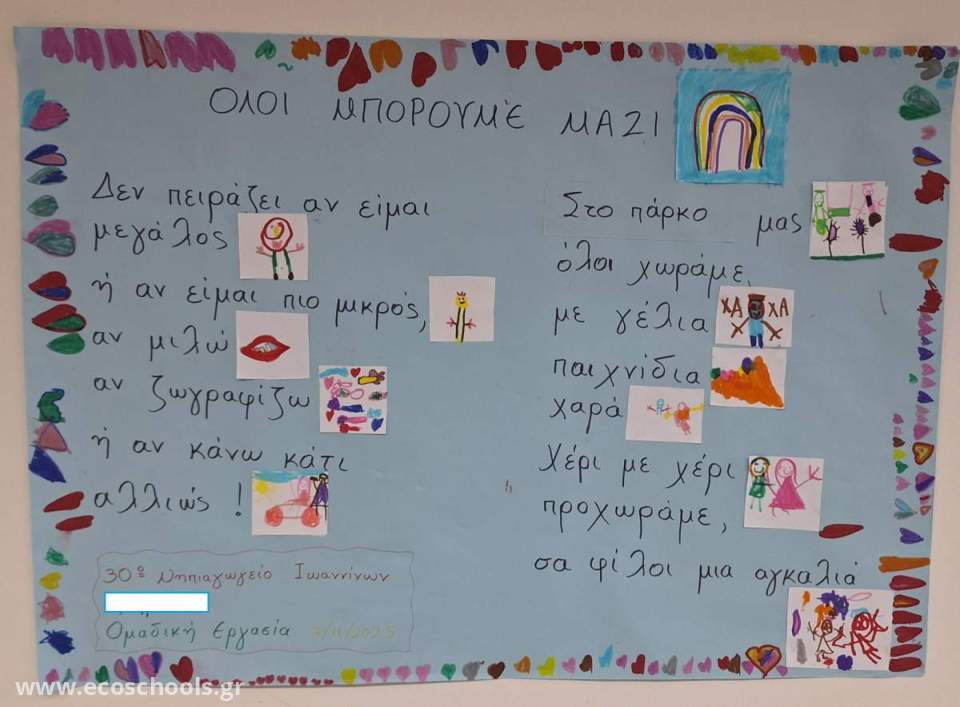 ΟΛΟΙ ΜΠΟΡΟΥΜΕ ΜΑΖΙ
Δεν πειράζει αν είμαι
μεγάλος
ή αν είμαι πιο μικρός,
αν μιλώ
αν ζωγραφίζω
ή αν κάνω κάτι
αλλιώς !
30ο Νηπιαγωγείο Ιωαννίνων
Ομαδική Εργασία 7/11/2025
Στο πάρκο μας
όλοι χωράμε,
με γέλια
ΧΑ ΧΑ
παιχνίδια
χαρά
Χέρι με χέρι
προχωράμε,
σα φίλοι μια αγκαλιά
www.ecoschools.gr